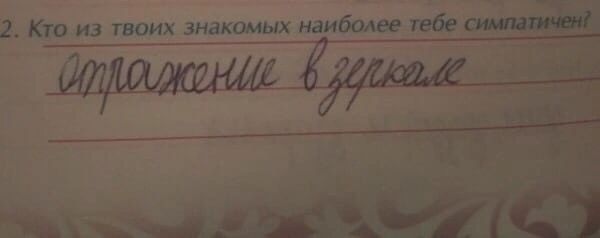 2. Кто из твоих знакомых наиболее тебе симпатичен?
отражение в зеркале